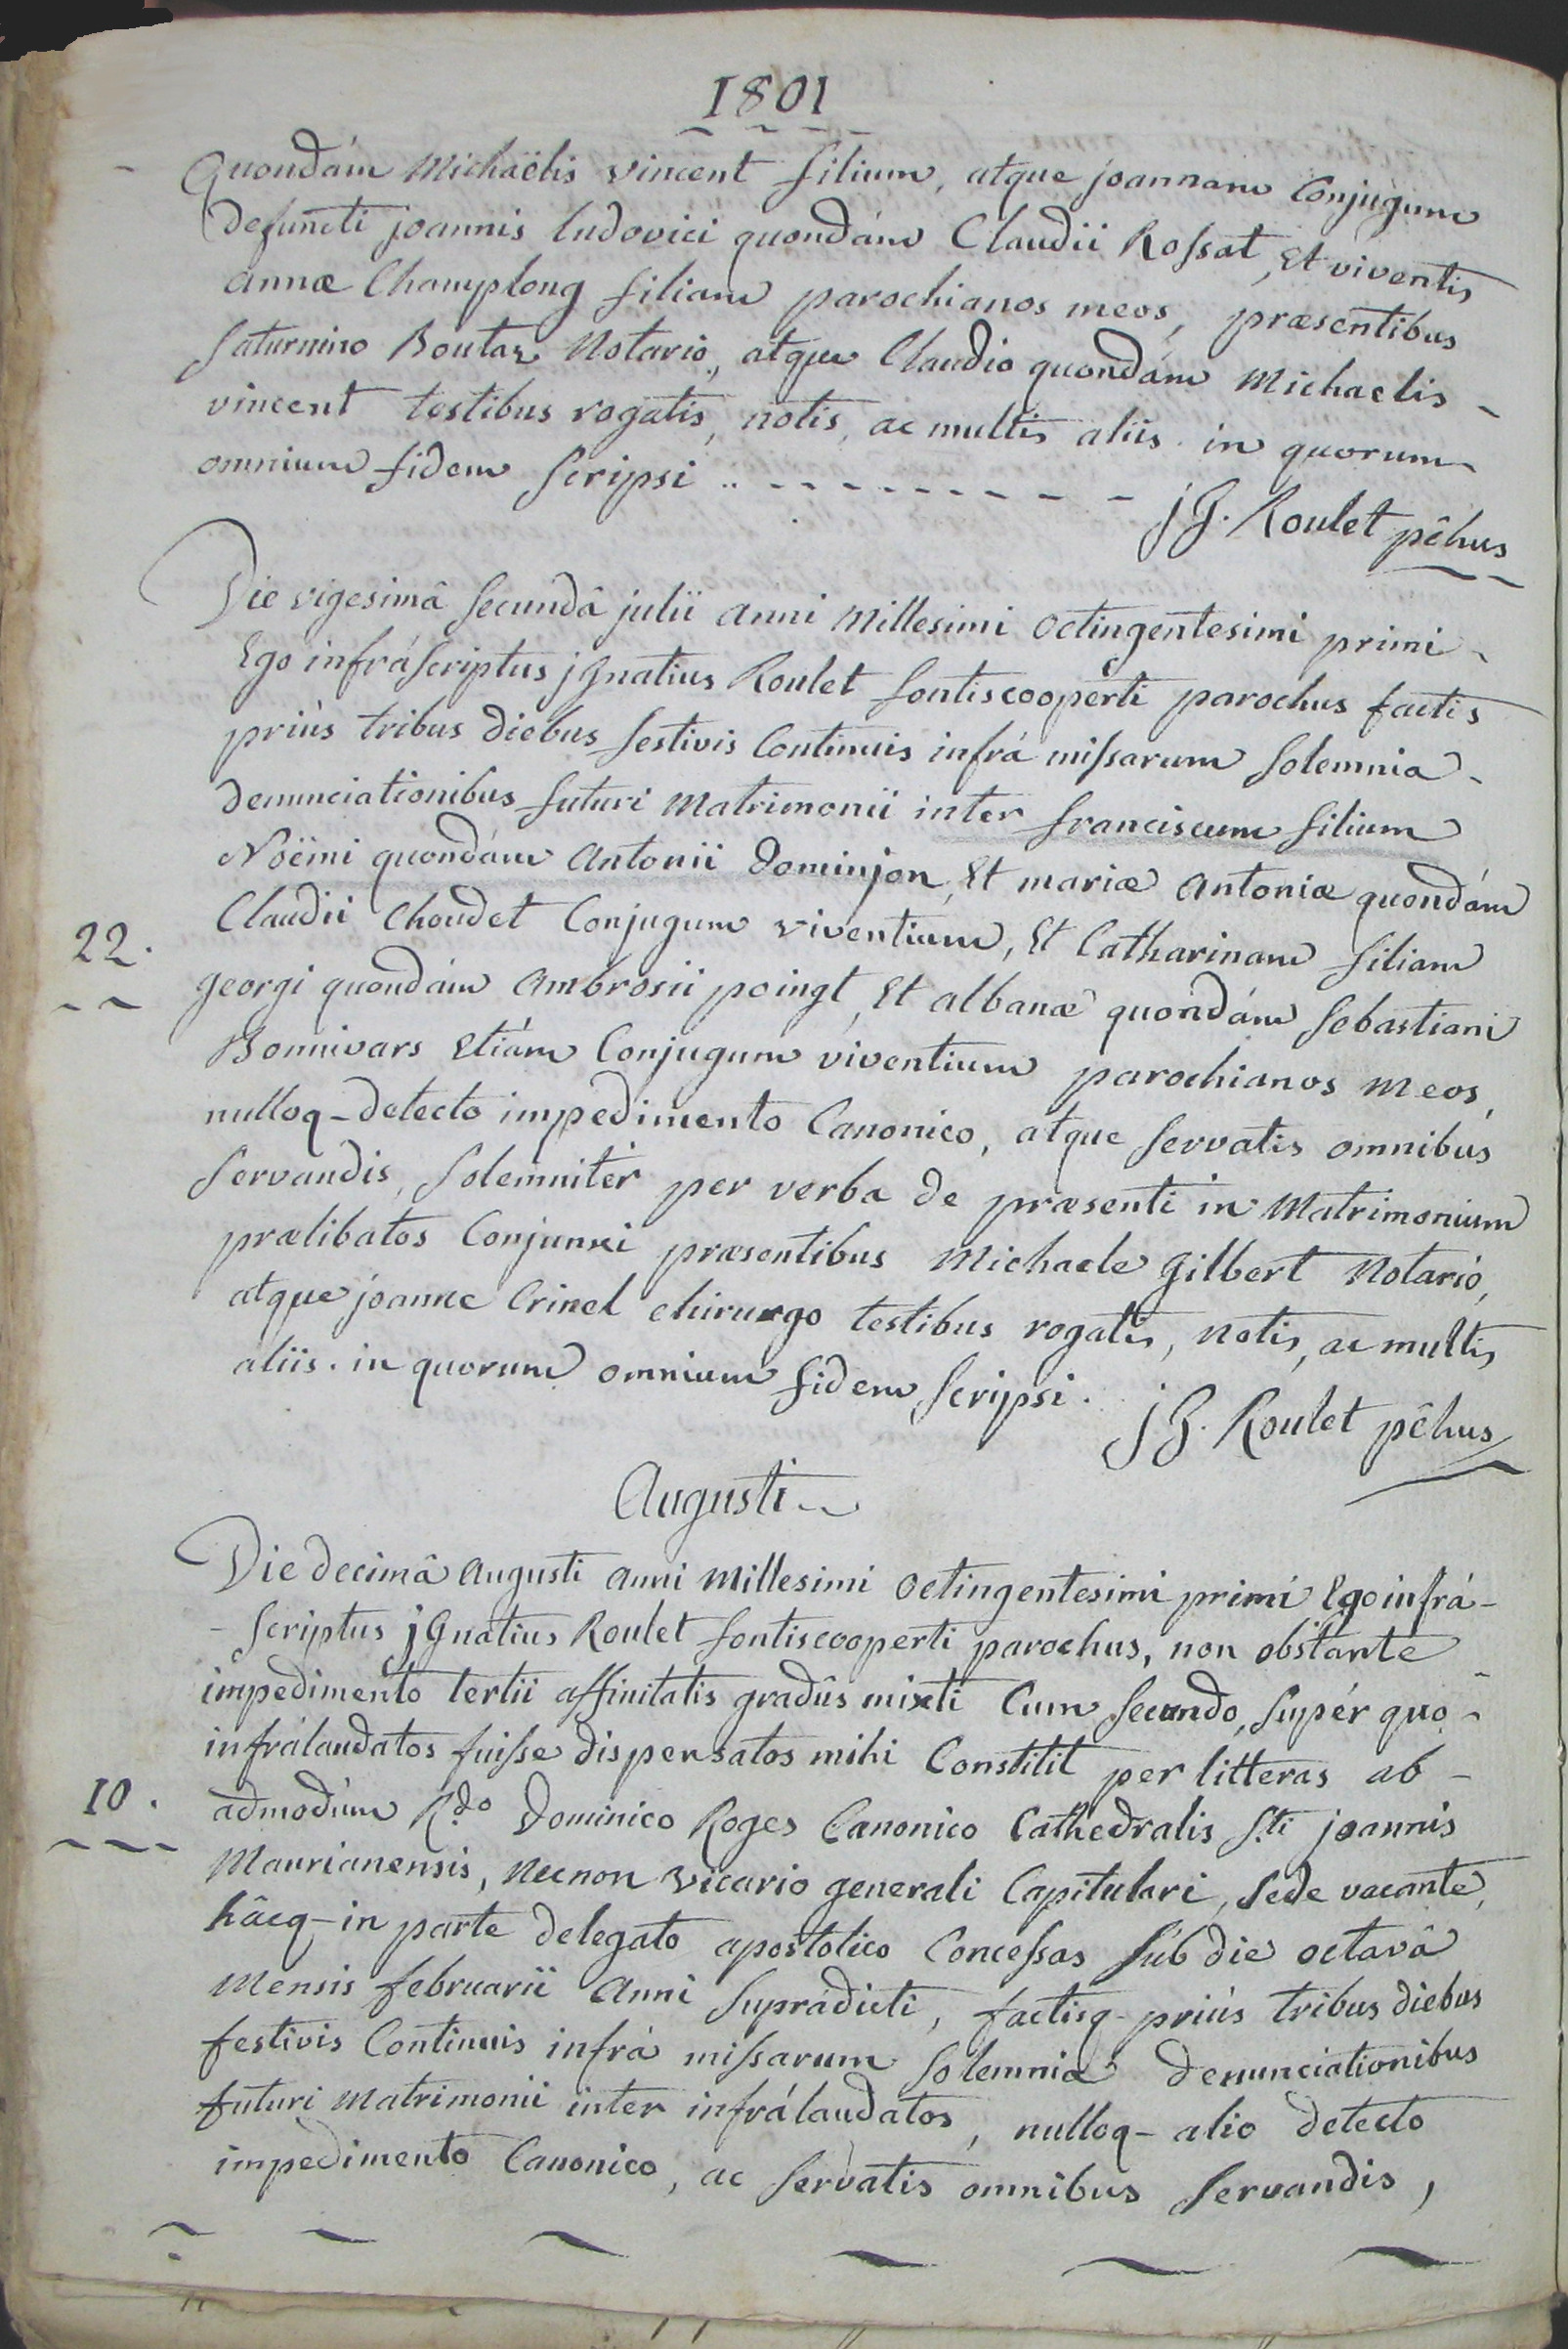 1801
Quondám Michaëlis vincent filium, atque joannam Conjugum
defuncti joannis ludovici quondám Claudii Rossat, Et viventis
annæ Champlong filiam parochianos meos, præsentibus
Saturnino Boutaz Notario, atque Claudio quondám Michaelis -
vincent testibus rogatis, notis, ac multis aliis. in quorum -
omnium fidem scripsi .. - - - - - - - - -
jG. Roulet pêhus
Die vigesimâ secundâ julii anni Millesimi octingentesimi primi -
Ego infráscriptus jGnatius Roulet fontiscooperti parochus factis
priùs tribus diebus festivis Continuis infrá missarum solemnia -
denunciationibus futuri Matrimonii inter franciscum filium
Noëmi quondám Antonii Dominjon, Et mariæ Antoniæ quondám
22.
Claudii Choudet Conjugum viventium, Et Catharinam filiam
georgi quondám Ambrosii poingt, Et albanæ quondám Sebastiani
Bonnivars Etiám Conjugum viventium parochianos meos,
nulloq- detecto impedimento Canonico, atque servatis omnibus
servandis, solemniter per verba de præsenti in Matrimonium
prælibatos Conjunxi præsentibus Michaele gilbert Notario,
atque joanne Crinel chirurgo testibus rogatis, notis, ac multis
aliis. in quorum omnium fidem scripsi.
jG. Roulet pêhus
Augusti
Die decimâ Augusti anni Millesimi octingentesimi primi Ego infrá-
- scriptus jGnatius Roulet fontiscooperti parochus, non obstante
impedimento tertii affinitatis gradûs mixti Cum secundo, supér quo -
infrálaudatos fuisse dispensatos mihi Constitit per litteras ab -
10.
admodùm R.do Dominico Roges Canonico Cathedralis S.ti joannis
Maurianensis, necnon vicario generali Capitulari, sede vacante,
hâcq- in parte delegato apostolico Concessas sub die octavâ
Mensis februarii Anni suprádicti, factisq- priùs tribus diebus
festivis Continuis infrá missarum solemnia denunciationibus
futuri Matrimonii inter infrálaudatos, nulloq- alio detecto
impedimento Canonico, ac servatis omnibus servandis,